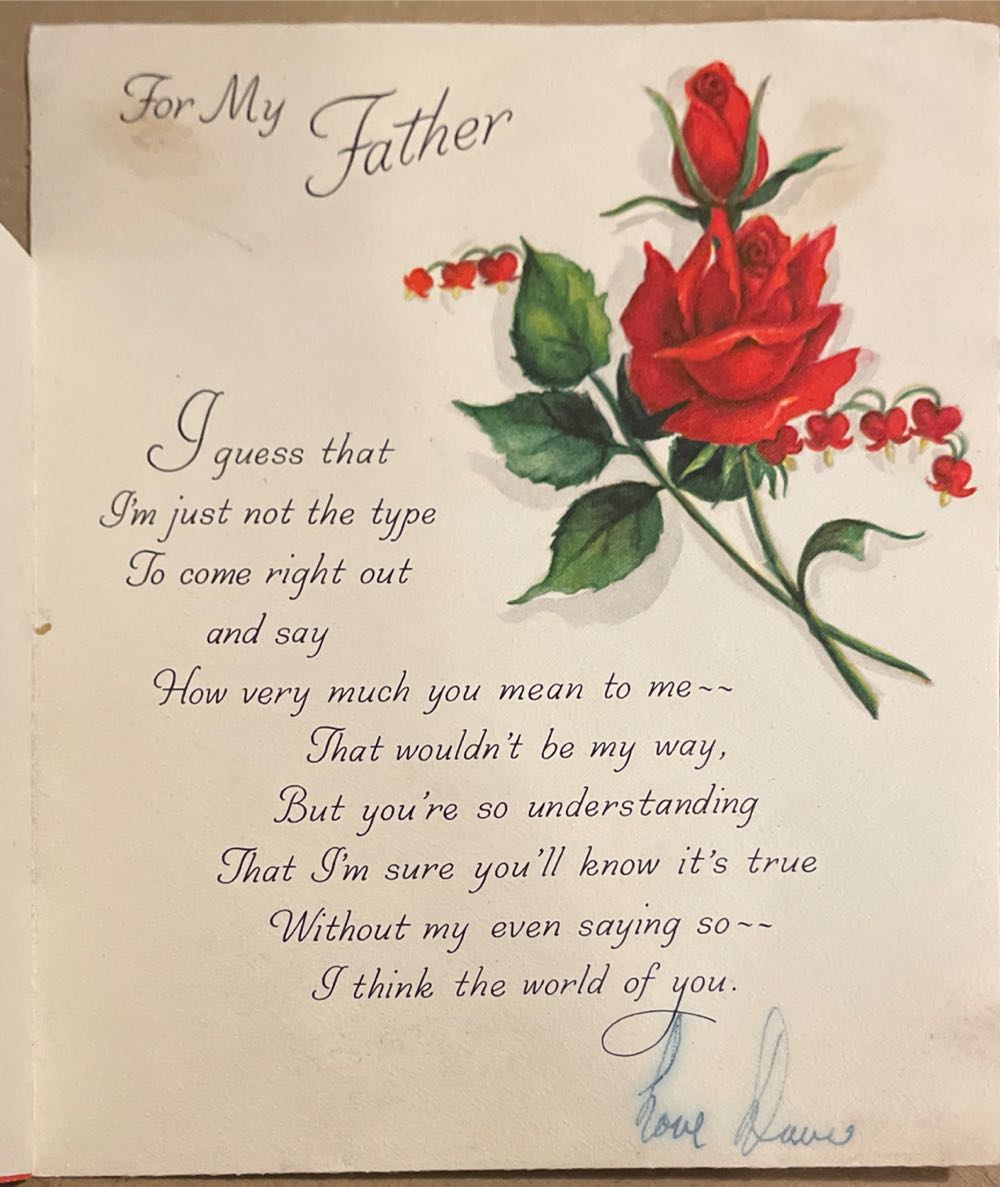 For My Father
I guess that
I'm just not the type
To come right out
and say
How very much you mean to me~~
That wouldn't be my way,
But you're so understanding
That I'm sure you'll know it's true
Without my even saying so~~
I think the world of you.
Love